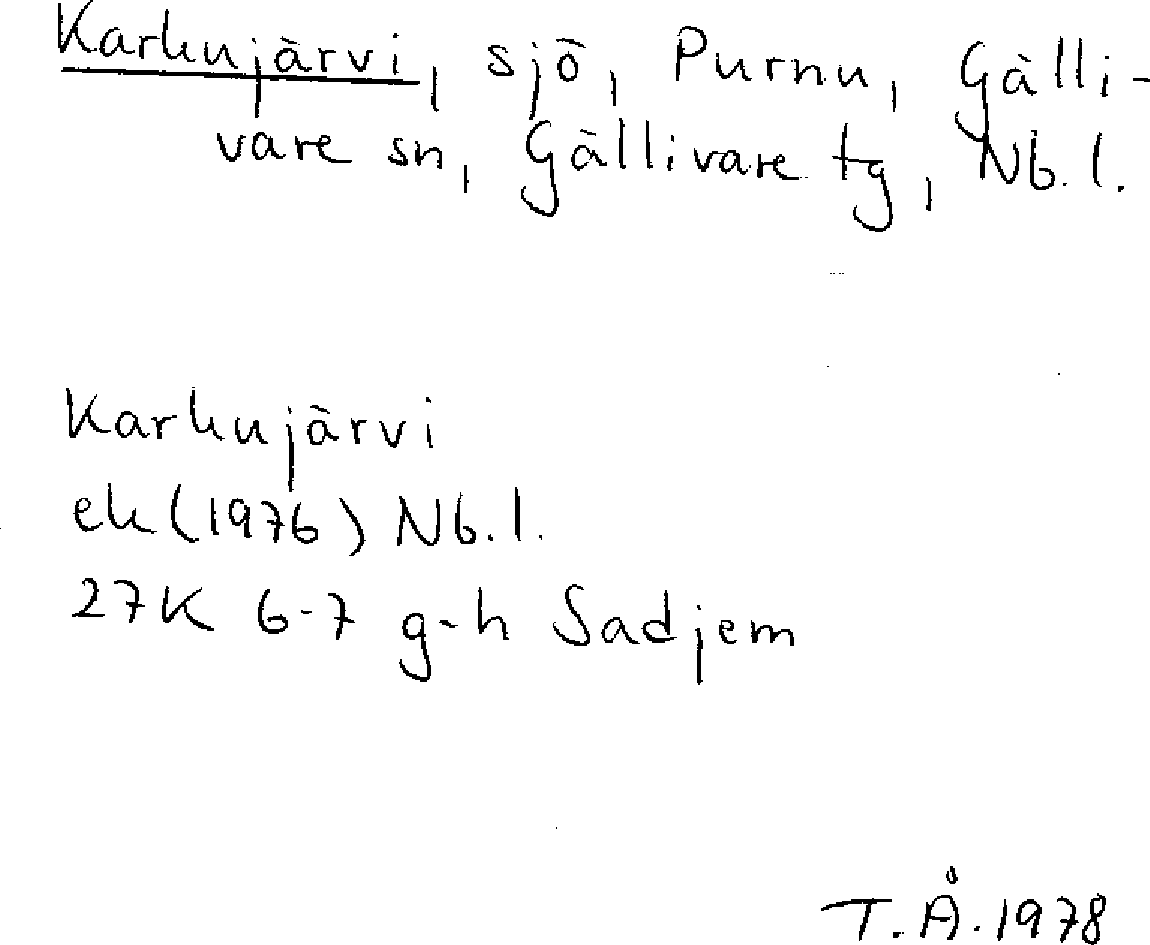 Karhujärvi, sjö, Purnu, Gälli-
vare sn, Gällivare tg, Nb. l.
Karhujärvi
ek (1976) Nb. l.
27K 6-7 g-h Sadjem
T. Å. 1978